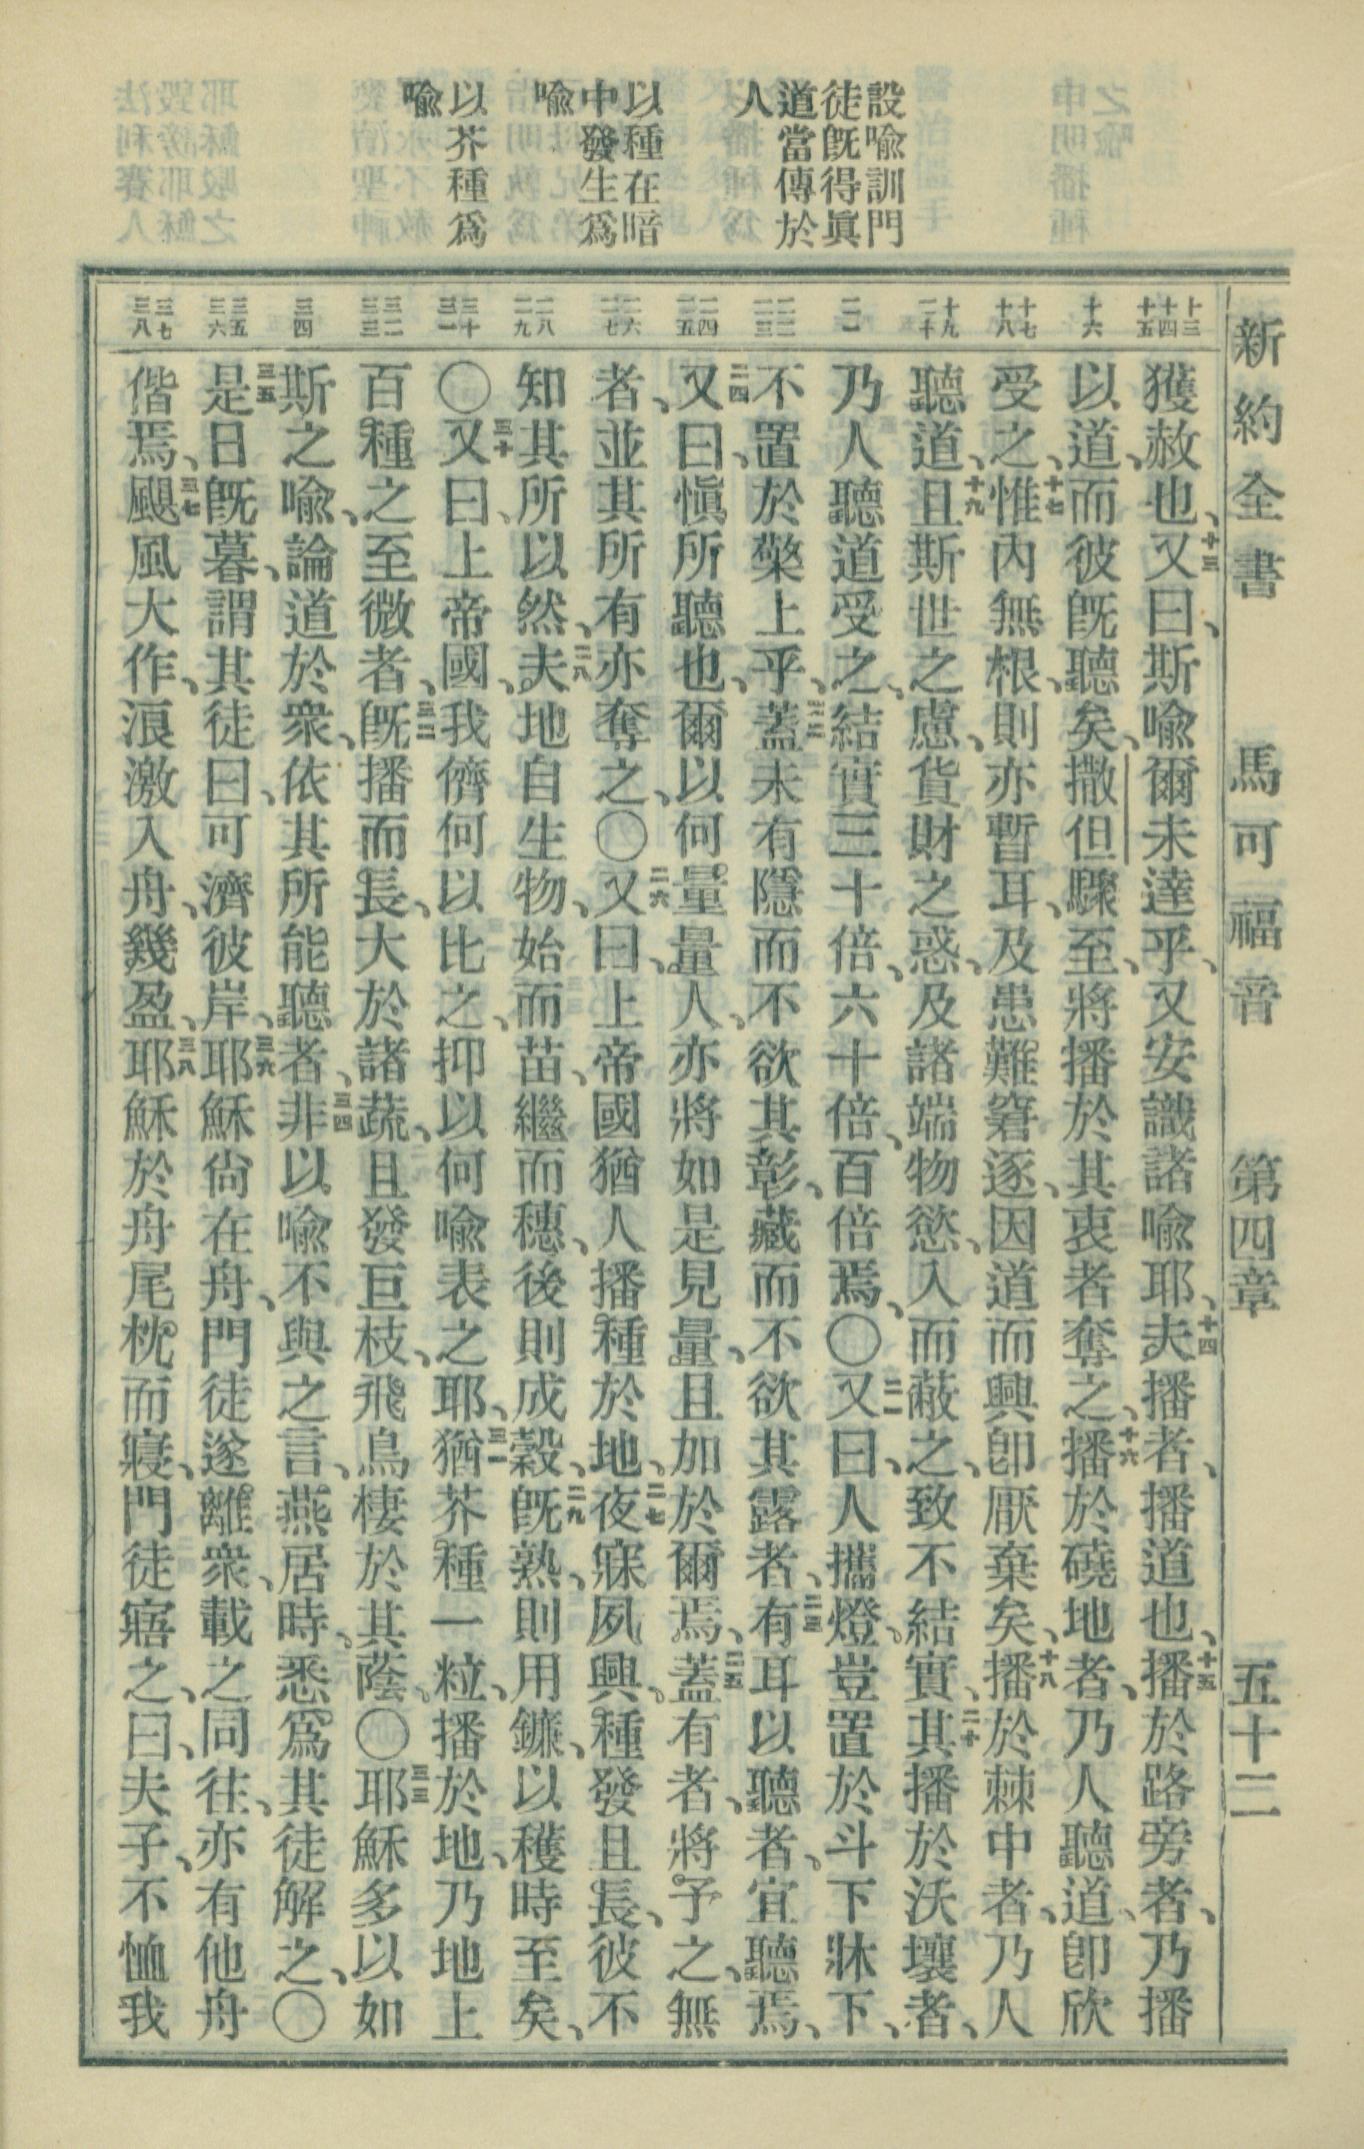 新約全書 馬可福音 第四章 五十二
設喩訓門
徒旣得眞
道當傳於
人
以種在暗
中發生爲
喩
以芥種爲
喩
十三 十四 十五
十六
十七 十八
十九 二十
二一
二二 二三
二四 二五
二六 二七
二八 二九
三十 三一
三二 三三
三四
三五 三六
三七 三八
獲赦也、十三又曰、斯喩爾未達乎、又安識諸喩耶、十四夫播者、播道也、十五播於路旁者、乃播
以道、而彼旣聽矣、撒但驟至、將播於其衷者奪之、十六播於磽地者、乃人聽道、卽欣
受之、十七惟內無根、則亦暫耳、及患難窘逐、因道而興、卽厭棄矣、十八播於棘中者、乃人
聽道、十九且斯世之慮、貨財之惑、及諸端物慾、入而蔽之、致不結實、二十其播於沃壤者、
乃人聽道受之、結實三十倍、六十倍、百倍焉、〇二一又曰、人攜燈、豈置於斗下牀下、
不置於檠上乎、二二蓋未有隱而不欲其彰、藏而不欲其露者、二三有耳以聽者、宜聽焉、
二四又曰、愼所聽也、爾以何量量人、亦將如是見量、且加於爾焉、二五蓋有者、將予之、無
者、並其所有亦奪之、〇二六又曰、上帝國猶人播種於地、二七夜寐夙興、種發且長、彼不
知其所以然、二八夫地自生物、始而苗、繼而穗、後則成穀、二九旣熟、則用鐮、以穫時至矣、
〇三十又曰、上帝國、我儕何以比之、抑以何喩表之耶、三一猶芥種一粒、播於地、乃地上
百種之至微者、三二旣播而長、大於諸蔬、且發巨枝、飛鳥棲於其蔭、〇三三耶穌多以如
斯之喩、論道於衆、依其所能聽者、三四非以喩不與之言、燕居時、悉爲其徒解之、〇
三五是日旣暮、謂其徒曰、可濟彼岸、三六耶穌尙在舟、門徒遂離衆、載之同往、亦有他舟
偕焉、三七颶風大作、浪激入舟、幾盈、三八耶穌於舟尾枕而寢、門徒寤之、曰、夫子、不恤我